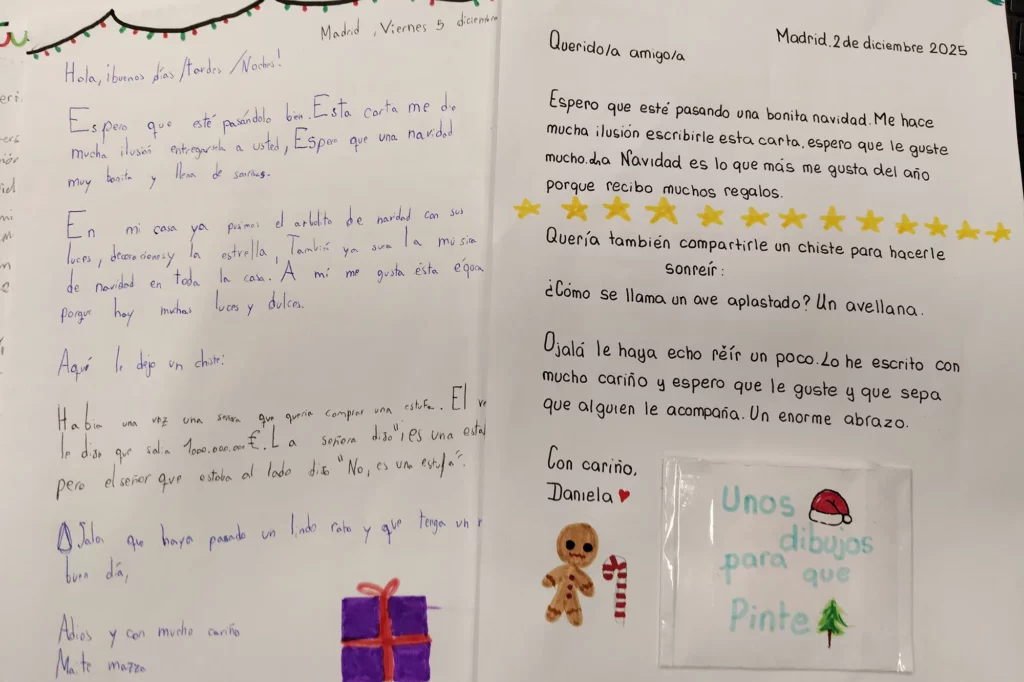 Madrid, Viernes 5 diciembre
Hola, ¡buenos días /tardes /Noches!
Espero que esté pasándolo bien. Esta carta me dio
mucha ilusión entregársela a usted, Espero que una navidad
muy bonita y llena de sonrisas.
En mi casa ya pusimos el arbolito de navidad con sus
luces, decoraciones y la estrella, También ya suena la música
de navidad en toda la casa. A mi me gusta ésta época
porque hay muchas luces y dulces.
Aquí le dejo un chiste:
Había una vez una señora que quería comprar una estufa. El
le dijo que salía 1000.000.000€. La señora dijo "¡es una
pero el señor que estaba al lado dijo "No, es una estufa".
Ojala que haya pasado un lindo rato y que tenga un
buen día,
Adios y con mucho cariño
Maite mazza
Madrid, 2 de diciembre 2025
Querido/a amigo/a
Espero que esté pasando una bonita navidad. Me hace
mucha ilusión escribirle esta carta, espero que le guste
mucho. La Navidad es lo que más me gusta del año
porque recibo muchos regalos.
Quería también compartirle un chiste para hacerle
sonreír:
¿Cómo se llama un ave aplastado? Un avellana.
Ojalá le haya echo reír un poco. Lo he escrito con
mucho cariño y espero que le guste y que sepa
que alguien le acompaña. Un enorme abrazo.
Con cariño,
Daniela
Unos
dibujos
para que
Pinte